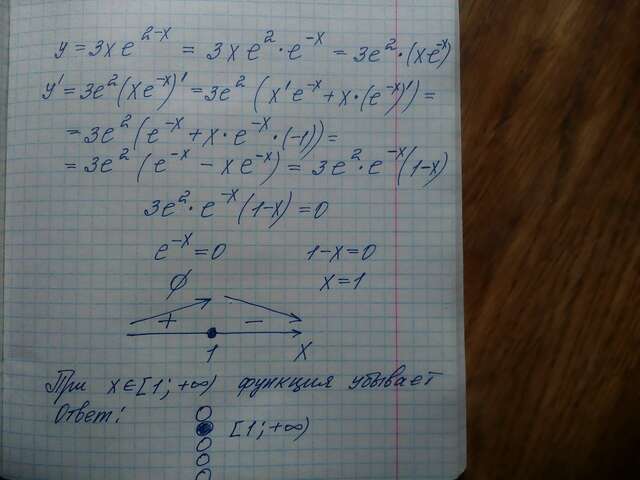 y = 3xe^{2-x} = 3xe^2 · e^{-x} = 3e^2 · (xe^{-x})
y' = 3e^2(xe^{-x})' = 3e^2 (x'e^{-x} + x · (e^{-x})') =
= 3e^2(e^{-x} + x · e^{-x} · (-1)) =
= 3e^2 (e^{-x} - xe^{-x}) = 3e^2 · e^{-x}(1-x)
3e^2 · e^{-x}(1-x) = 0
e^{-x} = 0 1-x=0
∅ x=1
+ -
1 X
При x∈[1; +∞) функция убывает
Ответ:
[1; +∞)